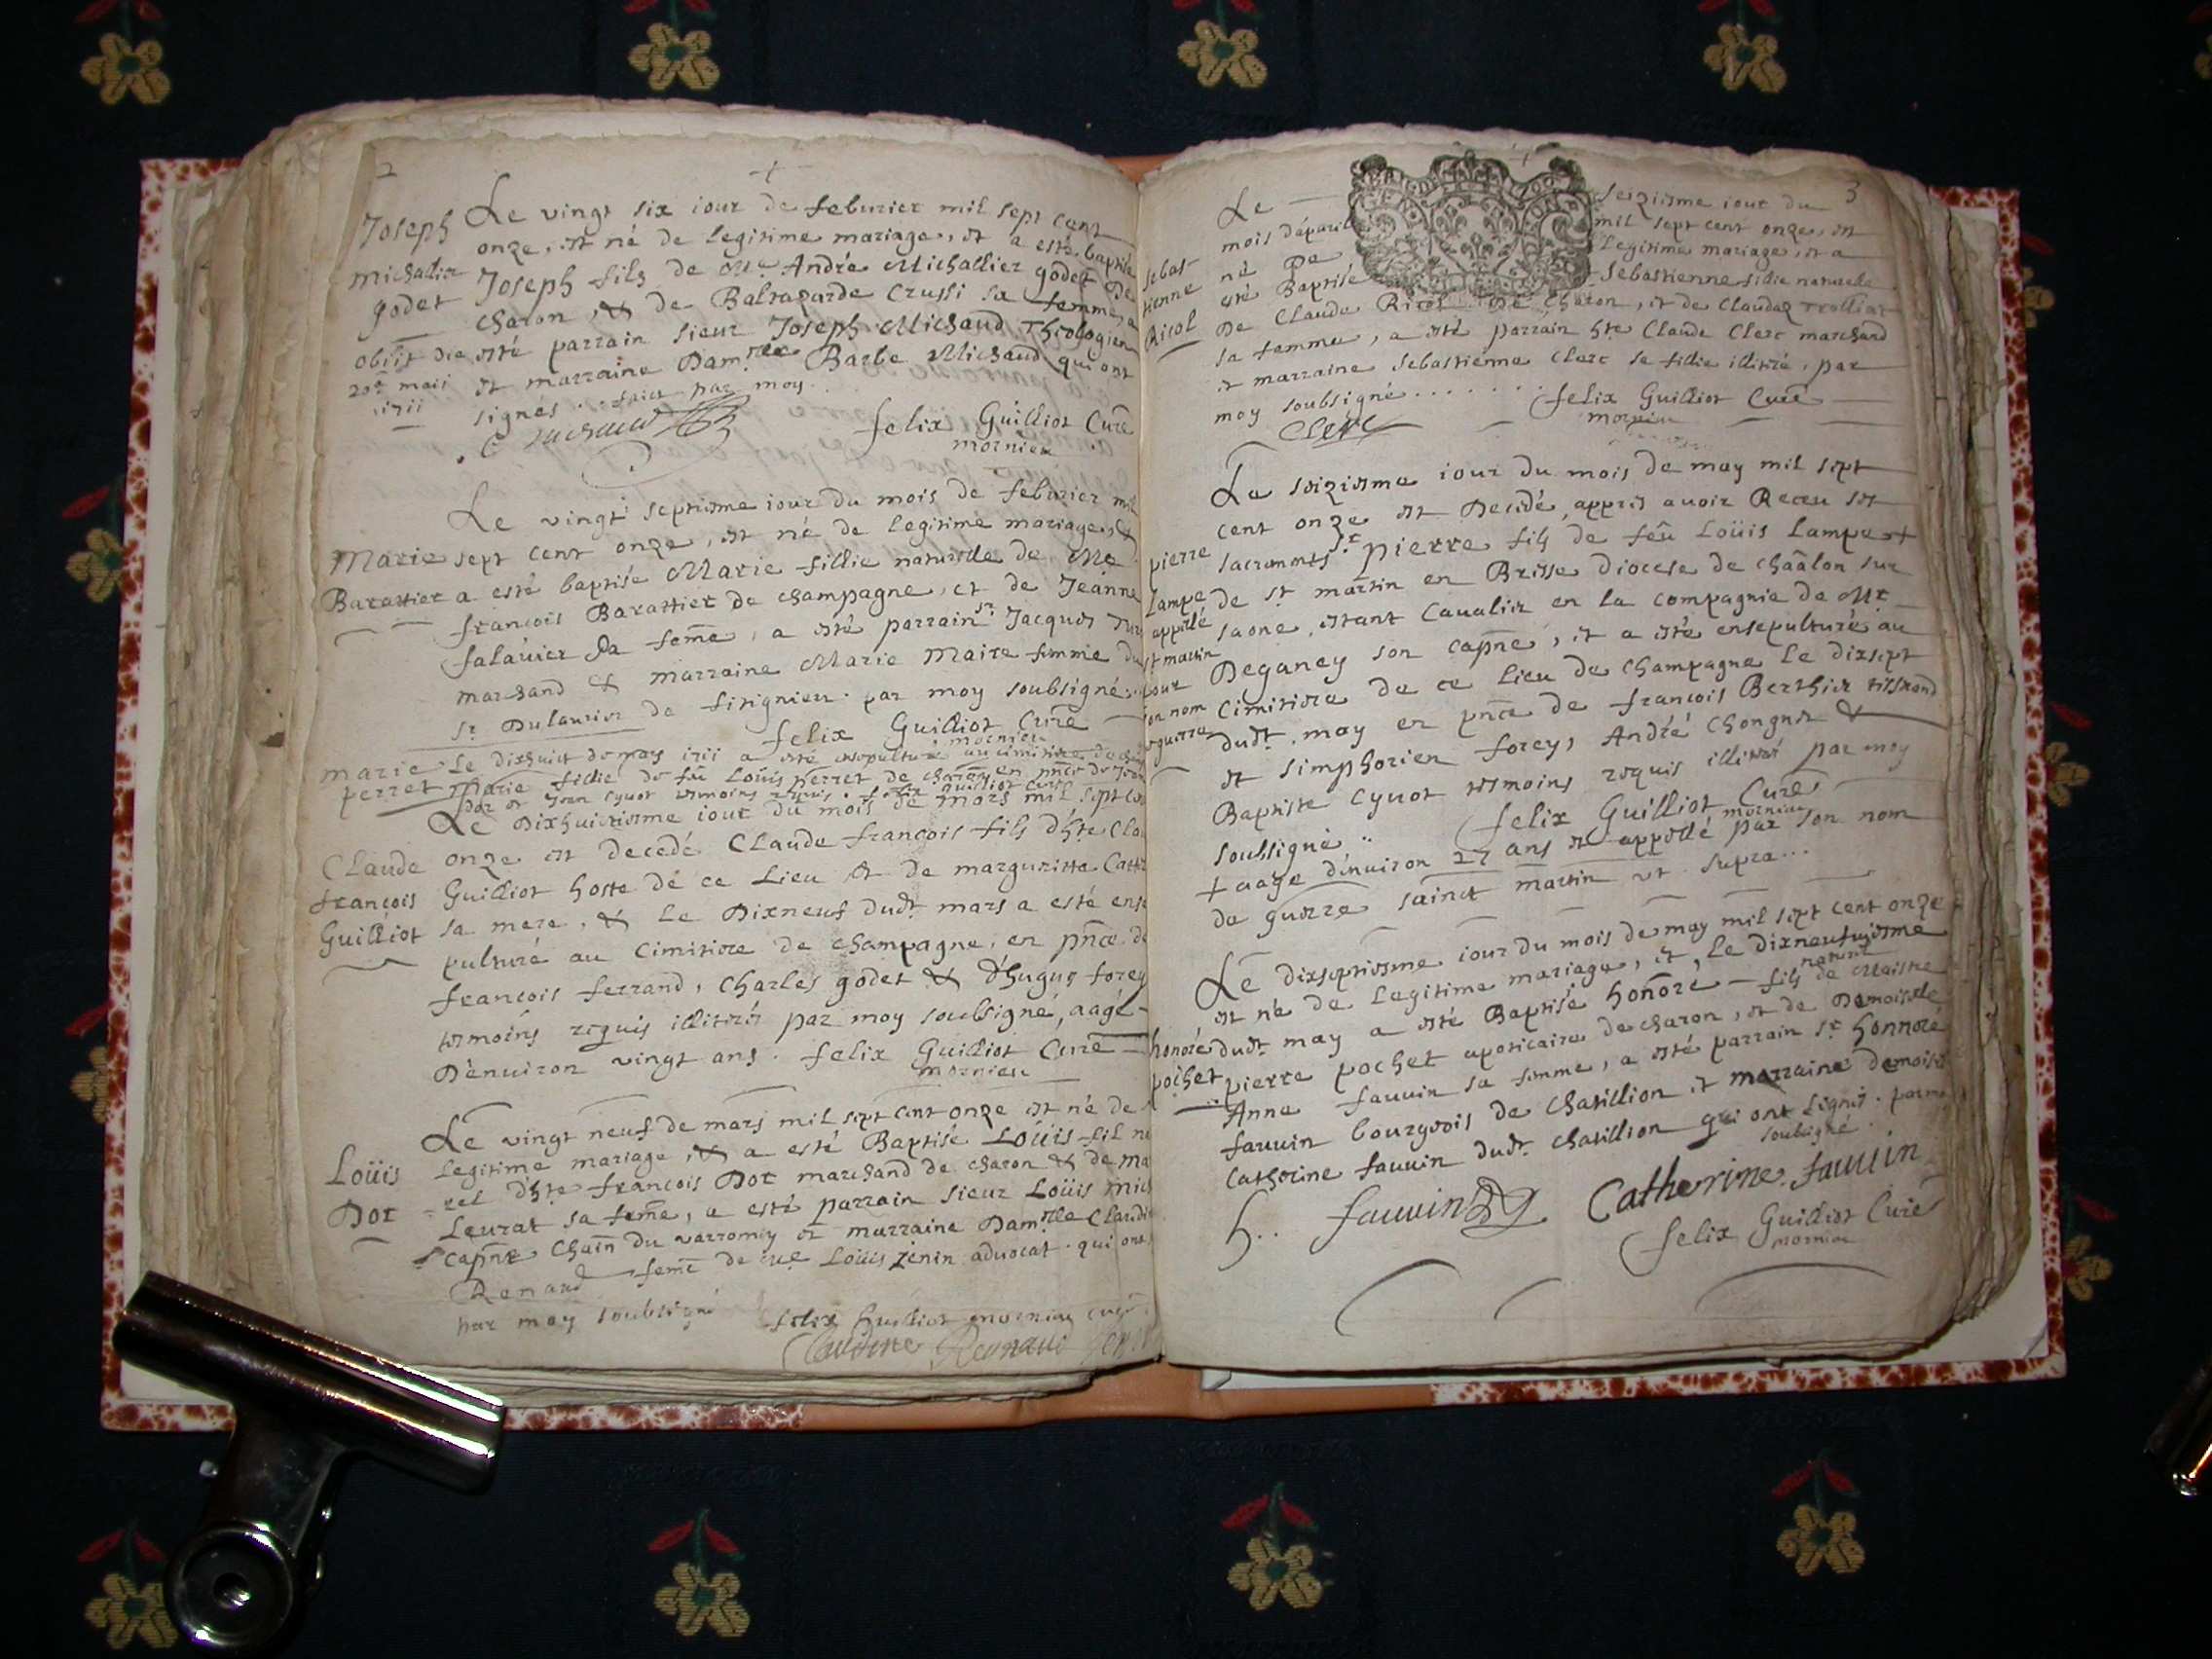 2
Joseph
Michallier
godet
obiit die
20e maii
1711
Le vingt six iour de feburier mil sept cent
onze, est né de legitime mariage, et a esté baptisé
Joseph fils de Me André Michallier godet de
charon, & de Baltazarde Crussi sa femme, a
esté parrain sieur Joseph Michaud Theologien
et marraine Damlle Barbe Michaud qui ont
signés par moy
Felix Guilliot Curé
mornieu
Marie
Barattier
Le vingt septiesme iour du mois de feburier mil
sept cent onze, est né de legitime mariage, &
a esté baptisé Marie fillie naturelle de Me
françois Barattier de champagne, et de Jeanne
falauier sa feme, a esté parrain sr Jacques
marchand & marraine Marie Maire femme du
sr Dulaurier de firignieu par moy soubsigné
felix Guilliot Curé
mornieu
marie
perret
Le dixhuict de mars 1711 a esté ensepulturé au cimitiere de
Marie fillie de feu Louis perret de charon en pnce de
Dor et Jean Cyuot tesmoins requis. felix guilliot curé
Claude
françois
Guilliot
Le Dixhuictiesme iour du mois de mars mil sept cent
onze est decedé Claude françois fils d'hte
Guilliot hoste de ce Lieu & de margueritte
sa mere, & Le Dixneuf dudt mars a esté ense
pulturé au Cimitiere de champagne, en pnce de
françois ferrand, Charles godet & d'hugues forey
tesmoins requis illiterés par moy soubsigné, aagé
D'enuiron vingt ans. felix Guilliot Curé
mornieu
Loüis
Dor
Le vingt neuf de mars mil sept cent onze est né de
legitime mariage, & a esté Baptisé Loüis fil natu
rel d'hte françois Dor marchand de charon & de
Leurat sa feme, a esté parrain sieur Loüis
capne Chain du varromey et marraine Damlle
Renaud feme de Me Loüis Jenin aduocat qui ont
par moy soubsigné
felix Guilliot mornieu curé
Claudine Renaud
3
Sebas
tienne
Ricol
Le seiziesme iour du
mois d'apuril mil sept cent onze, est
né De Legitime mariage, et a
esté Baptisé Sebastienne fillie naturelle
De Claude Ricol De Charon, et de Claudaz Trolliat
sa femme, a esté parrain hte Claude Clerc marchand
et marraine Sebastienne Clerc sa fillie illitiré, par
moy soubsigné . . . . . . felix Guilliot Curé
mornieu
Clerc
pierre
Lampe
appellé
st martin
pour
son nom
de guerre
Le seiziesme iour du mois de may mil sept
cent onze est Decedé, appres auoir Receu ses
sacrements sr pierre fils de feû Loüis Lampe +
de st martin en Bresse diocese de châalon sur
saone, estant Caualier en la compagnie de Mr
Deganey son capne, et a esté ensepulturé au
Cimitiere de ce Lieu de Champagne Le dixsept
dudt may en pnce de françois Berthier tisserand
et simphorien forey, André Chongnet &
Baptiste Cyuot tesmoins requis illiterés par moy
soubsigné .. felix Guilliot Curé
mornieu
+ aagé d'enuiron 27 ans et appellé par son nom
de guerre sainct martin ut supra...
honoré
pochet
Le dixseptiesme iour du mois de may mil sept cent onze
est né de Legitime mariage, et Le dixneufuiesme
dudt may a esté Baptisé honoré fils naturel de Maistre
pierre pochet apoticaire de charon, et de Demoiselle
Anne fauuin sa femme, a esté parrain sr honnoré
fauuin bourgeois de Chatillion et marraine demoiselle
Catherine fauuin dudt chatillion qui ont signés. par moy
soubsigné.
h.. fauuin Catherine fauuin
felix Guilliot Curé
mornieu